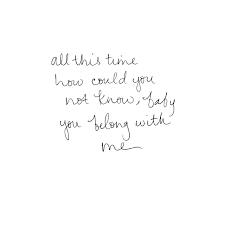 all this time
how could you
not know, baby
you belong with
me